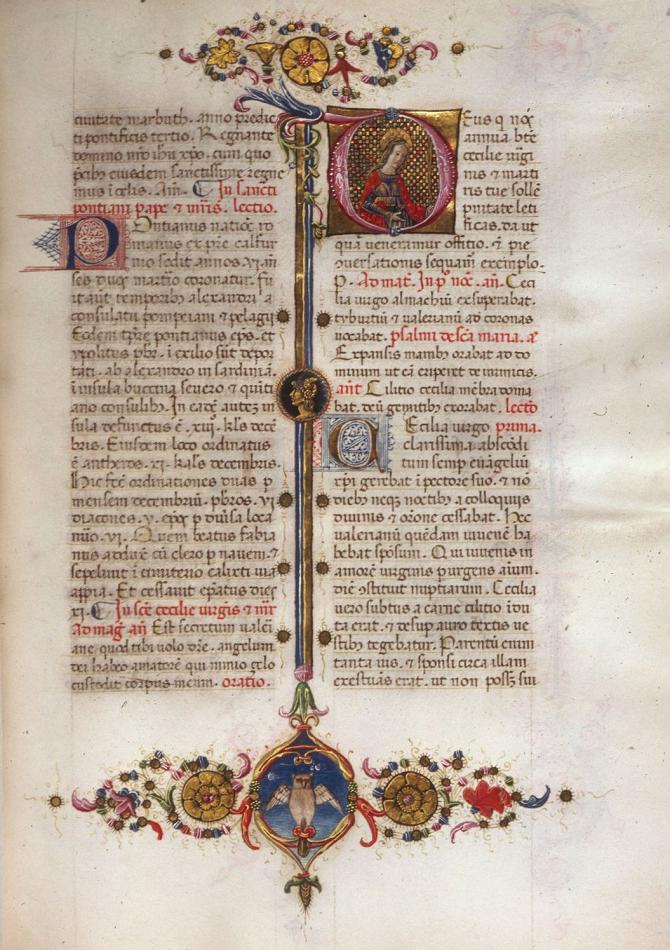 ciuitate marbuth. anno predic
ti pontificis tertio. Regnante
domino nro ihu xpo. cum quo
eiusdem sanctissime regne
mus i celis. Am. In sancti
pontiani pape & mris. lectio.
Pontianus natioe ro
manus ex pre calfur
nio sedit annos. vi. m
ses duos martirio coronatur. fu
it aut temporibus alexandri a
consulatu pompeiani & pelagii
Eodem tpre pontianus eps. et
ypolitus pbr. i exilio sut depor
tati. ab alexandro in sardinia.
i insula buccina seuero & quiti
ano consulibus. In eade autez in
sula defunctus e. xiij. kls dece
bris. Eiusdem loco ordinatus
e antheros. xi. kals decembris.
Hic fec ordinationes duas p
mensem decembriu. pbros. vi
diacones. v. epos p diuisa loca
nuo. vi. Quem beatus fabia
nus adduxit cu clero p nauem. &
sepeliuit i cimiterio calixti uia
appia. Et cessauit epatus dies
xi. In sce cecilie uirgis & mr
Ad mag an Est secretum valeri
ane quod tibi volo dre. angelum
dei habeo amatore qui nimio zelo
custodit corpus meum. oratio.
Deus q nos
annua bte
cecilie uirgi
nis & marti
ris tue solle
pnitate leti
ficas. da ut
qua veneramur offitio. & pie
conuersationis sequam exemplo.
P. Ad mat. In p noc. an. Ceci
lia uirgo almachiu exsuperabat.
tyburtiu & valerianu ad coronas
uocabat. psalmi de sca maria. a
Expansis manibus orabat ad do
minum ut ea eriperet de inimicis.
ant Cilitio cecilia mebra doma
bat. deu gemitibus exorabat. lectio
Cecilia uirgo prima.
clarissima abscodi
tum semp euageliu
xpi gerebat i pectore suo. & no
diebus neqz noctibus a colloquiis
diuinis & orone cessabat. Hec
valerianu quedam iuuene ha
bebat sposum. Qui iuuenis in
amore uirginis purgens aium.
die constituit nuptiarum. Cecilia
uero subtus a carne cilitio idu
ta erat. & desup auro textis ue
stibus tegebatur. Parentu enim
tanta uis. & sponsi circa illam
exestuas erat. ut non possz sui